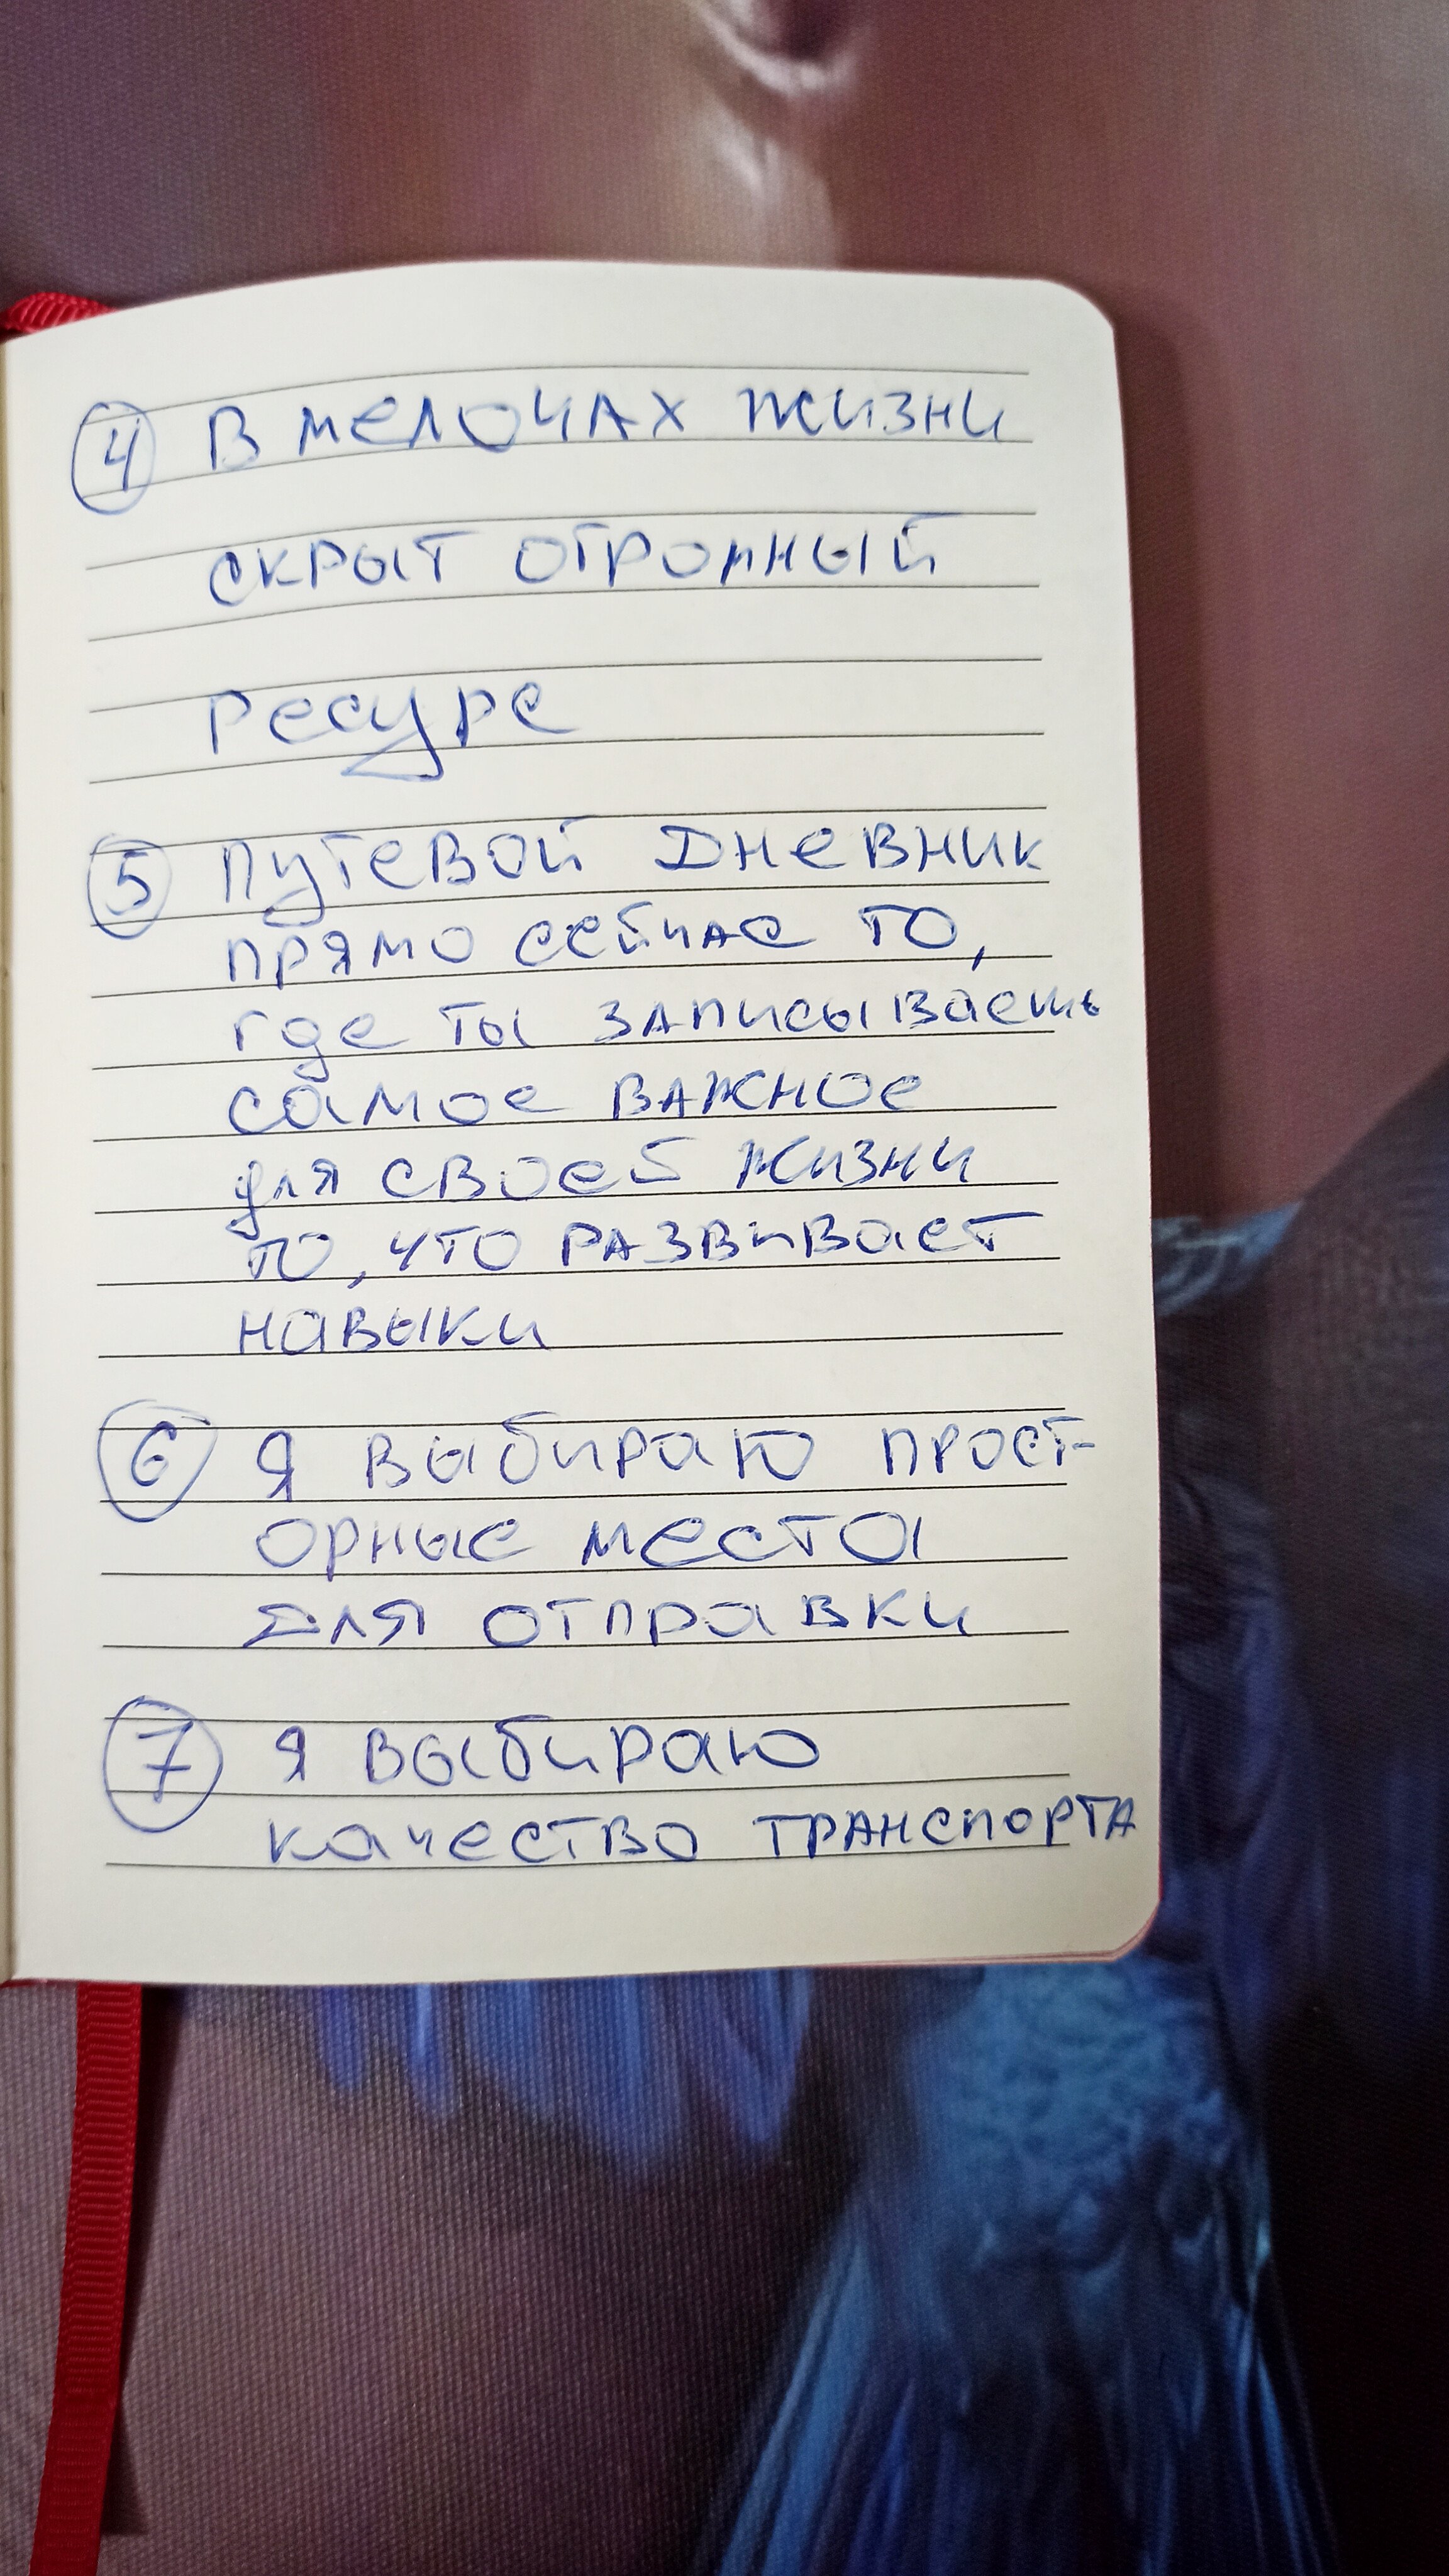 4 В мелочах жизни
скрыт огромный
ресурс
5 Путевой дневник
прямо сейчас то,
где ты записываешь
самое важное
для своей жизни
то, что развивает
навыки
6 Я выбираю прост-
орные места
для отправки
7 Я выбираю
качество транспорта